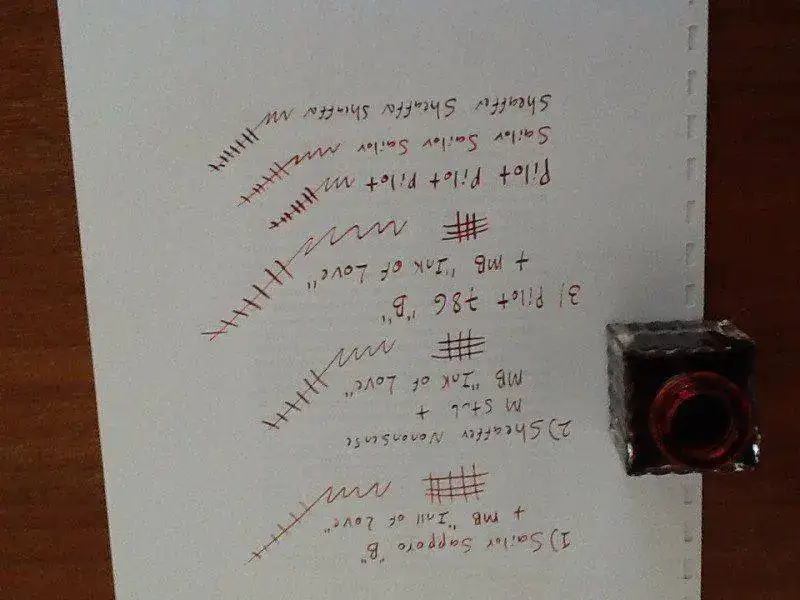 1) Sailor Sapporo "B"
+ MB "Ink of Love"
2) Sheaffer Nononsense
M Stub +
MB "Ink of Love"
3) Pilot 78G "B"
+ MB "Ink of Love"
Pilot Pilot Pilot
Sailor Sailor
Sheaffer Sheaffer Sheaffer